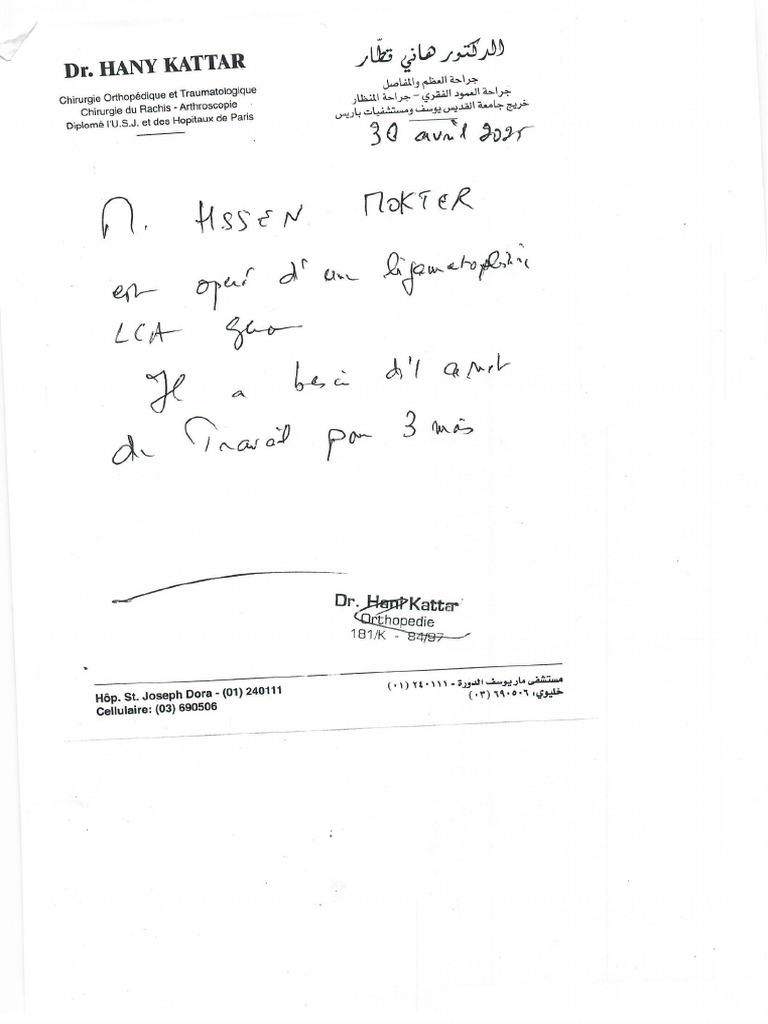 Dr. HANY KATTAR
Chirurgie Orthopédique et Traumatologique
Chirurgie du Rachis - Arthroscopie
Diplomé l'U.S.J. et des Hopitaux de Paris
الدكتور هاني قطّار
جراحة العظم والمفاصل
جراحة العمود الفقري – جراحة المنظار
خريج جامعة القديس يوسف ومستشفيات باريس
30 avril 2025
M. HSSEN MOKTER
est opéré d'une
LCA
Il a besoin d'1 arret
de Travail pour 3 mois
Dr. Hani Kattar
Orthopedie
181/K - 84/97
Hôp. St. Joseph Dora - (01) 240111
Cellulaire: (03) 690506
مستشفى مار يوسف الدورة - ٢٤٠١١١ (٠١)
خليوي: ٦٩٠٥٠٦ (٠٣)